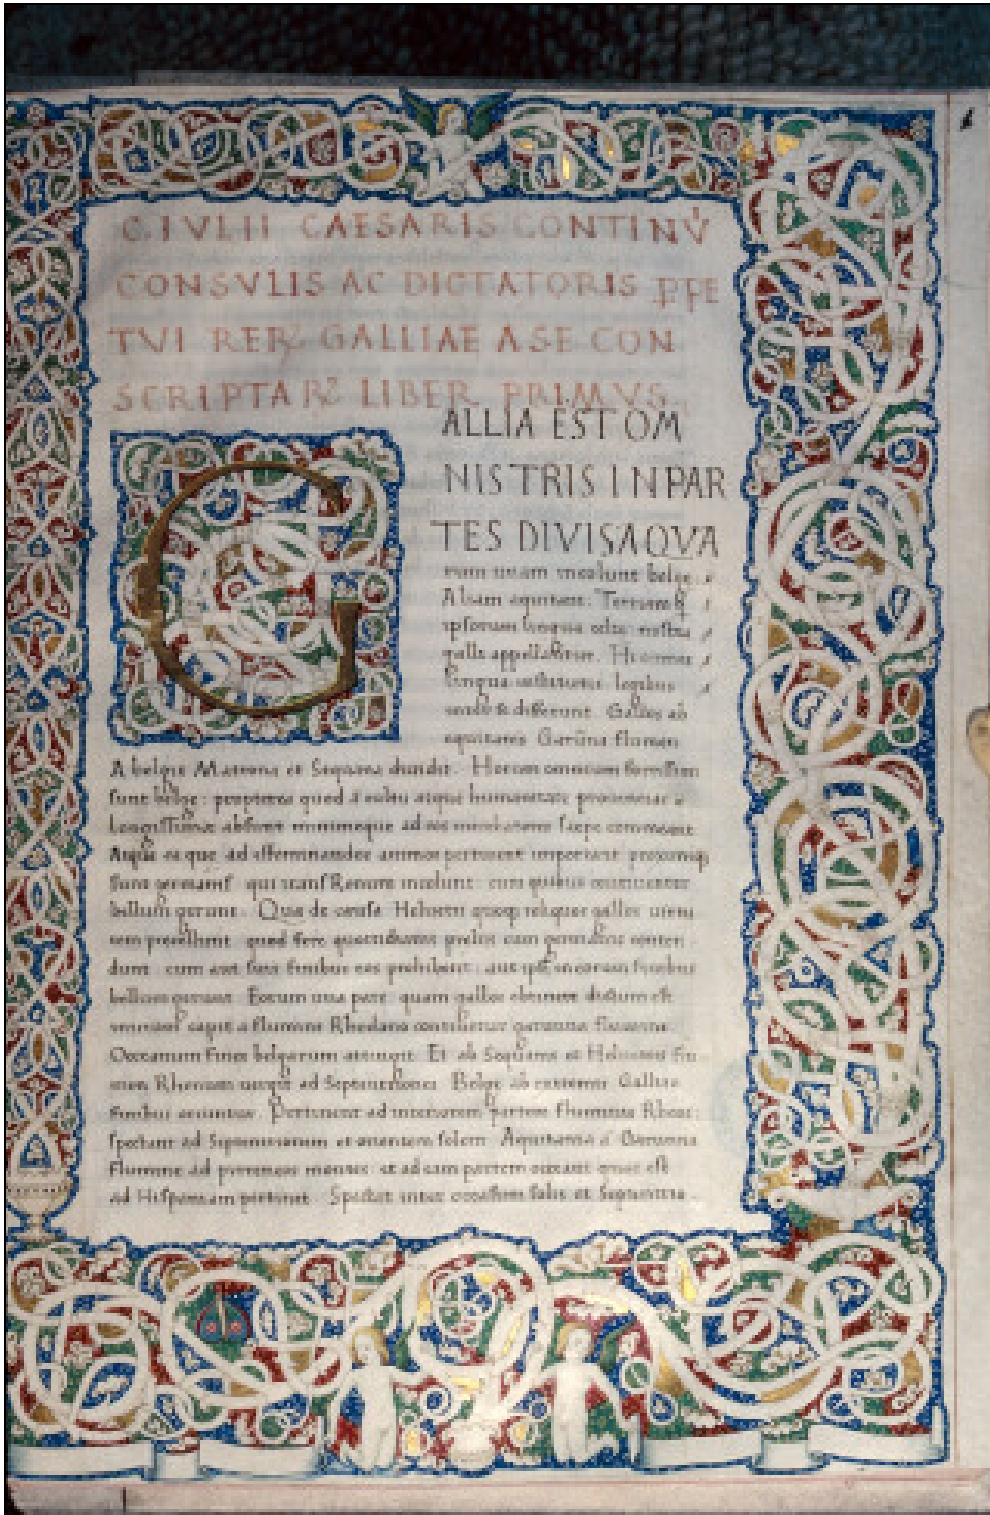 C. IVLII CAESARIS CONTINṼ
CONSVLIS AC DICTATORIS PPE
TVI RERꝜ GALLIAE A SE CON
SCRIPTARꝜ LIBER PRIMVS
G
ALLIA EST OM
NIS TRIS IN PAR
TES DIVISA QVA
rum unam incolunt belge
Aliam aquitani: Tertiam q
ipsorum lingua celte nostra
galli appellantur. Hi omnes
lingua institutis legibus
inter se differunt. Gallos ab
equitanis Garūna flumen
A belgis Matrona et Sequana diuidit. Horum omnium fortissimi
sunt belge: propterea quod a cultu atque humanitate prouinciae
longissime absunt minimeque ad eos mercatores saepe commeant
Atque ea que ad effeminandos animos pertinent important proximiq
sunt germanis qui trans Renum incolunt: cum quibus continenter
bellum gerunt. Qua de causa Heluetii quoq reliquos gallos uirtu
tem precellunt quod fere quottidianis preliis cum germanis conten
dunt cum aut suis finibus eos prohibent: aut ipsi in eorum finibus
bellum gerunt. Eorum una pars quam gallos obtinere dictum est
initium capit a flumine Rhodano continetur garunna flumine.
Occeanum finis belgarum attingit. Et ab Sequanis et Heluetiis flu
men Rhenum uergit ad Septentriones. Belge ab extremis Gallie
finibus oriuntur. Pertinent ad inferiorem partem fluminis Rheni:
spectant ad Septentrionem et orientem solem. Aquitania a Garunna
flumine ad pireneos montes et ad eam partem occeani que est
ad Hispaniam pertinet. Spectat inter occasum solis et Septentrio
1